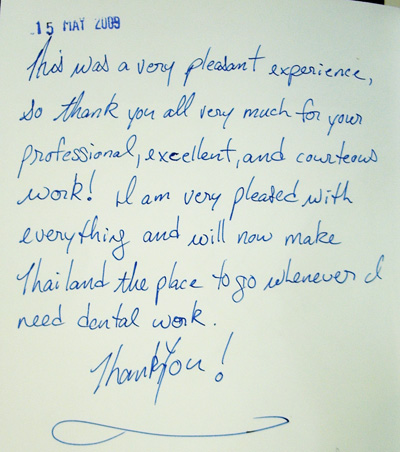 15 MAY 2009
This was a very pleasant experience,
so thank you all very much for your
professional, excellent, and courteous
work! I am very pleased with
everything and will now make
Thailand the place to go whenever I
need dental work.
Thank You!